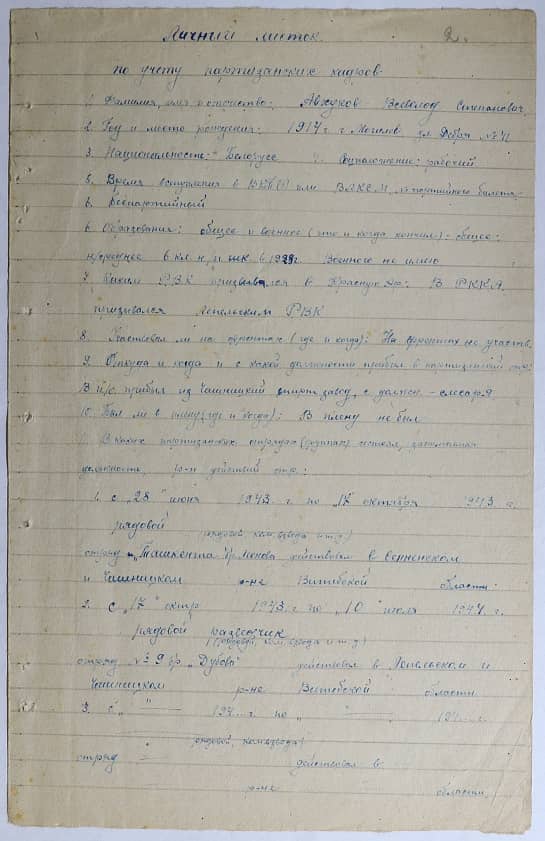 Личный листок 2.
по учету партизанских кадров.
1. Фамилия, имя и отчество: Авжуков Всеволод Степанович.
2. Год и место рождения: 1917 г. г. Могилев ул.
3. Национальность: - Белорус Соцположение: рабочий
5. Время вступления в ВКП(б) или ВЛКСМ, № партийного билета:
Беспартийный
6. Образование: общее и военное (что и когда кончил): - общее:
6 кл. в Военного не имею
7. Каким РВК призывался в Красную Ар: В РККА
призывался Лепельским РВК
8. Участвовал ли на фронтах (где и когда): На фронтах не участв.
9. Откуда и когда и с какой должности прибыл в партизанский отр:
В п/о прибыл из Чашницкий спирт завод, с должн. - слесаря
10. Был ли в плену (где и когда): В плену не был
11. В каких партизанских отрядах (группах) состоял, занимаемая
должность, р-н действий отр.:
1. с "28" июня 1943 г. по "17" октября 1943 г.
рядовой
(рядовой, ком.взвода и т.д.)
отряд действовал в сенненском
и Чашницком р-не Витебской области.
2. с "17" октр 1943 г. по "10" июля 1944 г.
рядовой разведчик
(рядовой, ком.взвода и т.д.)
отряд № 9 бр. „Дубова" действовал в Лепельском и
Чашницком р-не Витебской области
3. с " " 194 г. по " " 194 г.
(рядовой, комвзвода)
отряд действовал в
р-не области.